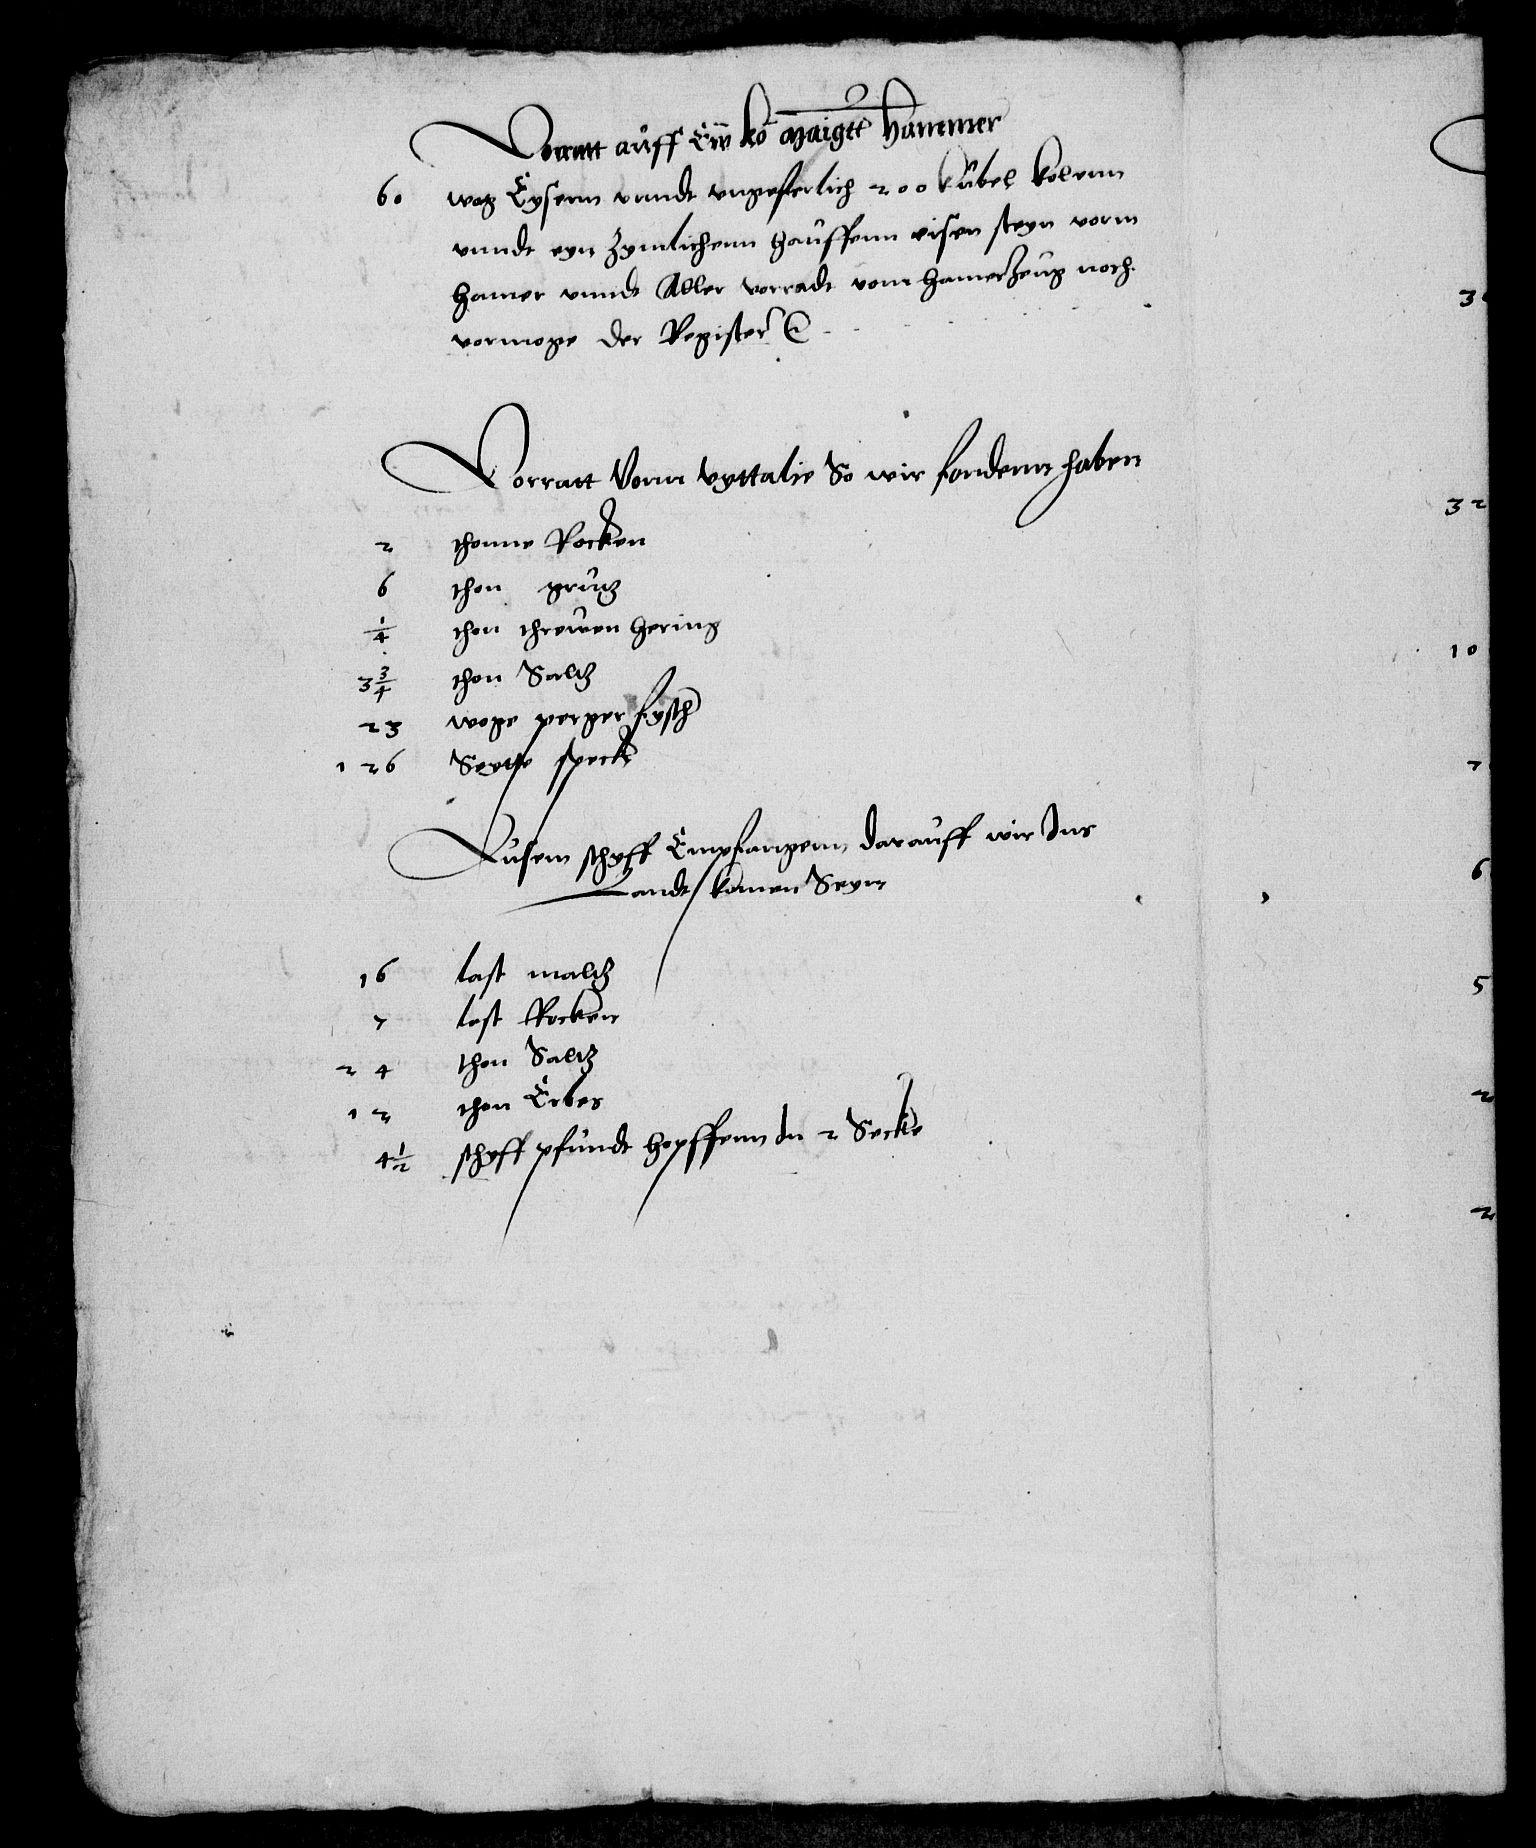 Vorratt auff Ew ko Maigtt Hammer
60 wog Eysenn vnndt vngeferlich 200 kubel kolenn
vnndt eyn zymlichenn hauffenn eisen steyn vorm
hamer vnndt Aller vorradt vom hamerzeug noch
vormoge der Register
Vorratt Vonn vyttalie So wir fondenn haben
2 thonne Rocken
6 thon grutz
1/4 thon threwen hering
3 3/4 thon Saltz
23 woge perger fysch
126 Seytte speck
Ausem schyff Empfangenn darauff wir Ins
Landt komen Seyn
16 last maltz
7 last Rocken
24 thon Saltz
12 thon Erbes
4 1/2 schyff pfundt hopffenn In 2 Secke
3
32
10
7
6
5
2
2